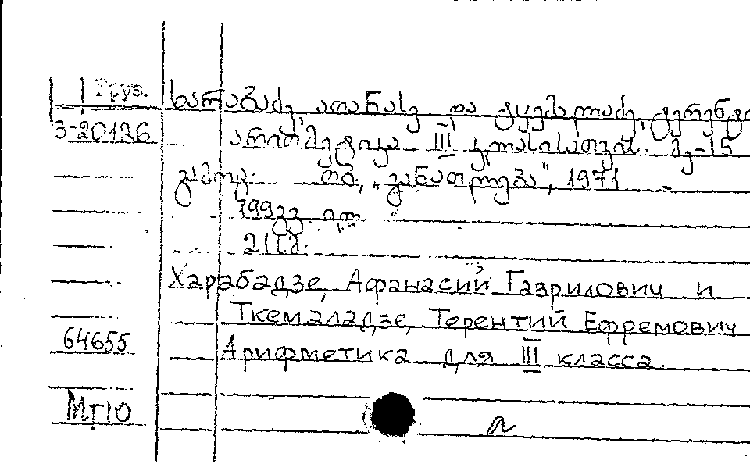 Груз.
ხარაბაძე, ათანასე და ტყემალაძე, ტერენტი
3-20126 არითმეტიკა III კლასისათვის. მე-15
გამოც. თბ., „განათლება", 1971
199 გვ.
Харабадзе, Афанасий Гаврилович и
Ткемаладзе, Терентий Ефремович
64655 Арифметика для III класса.
МПЮ